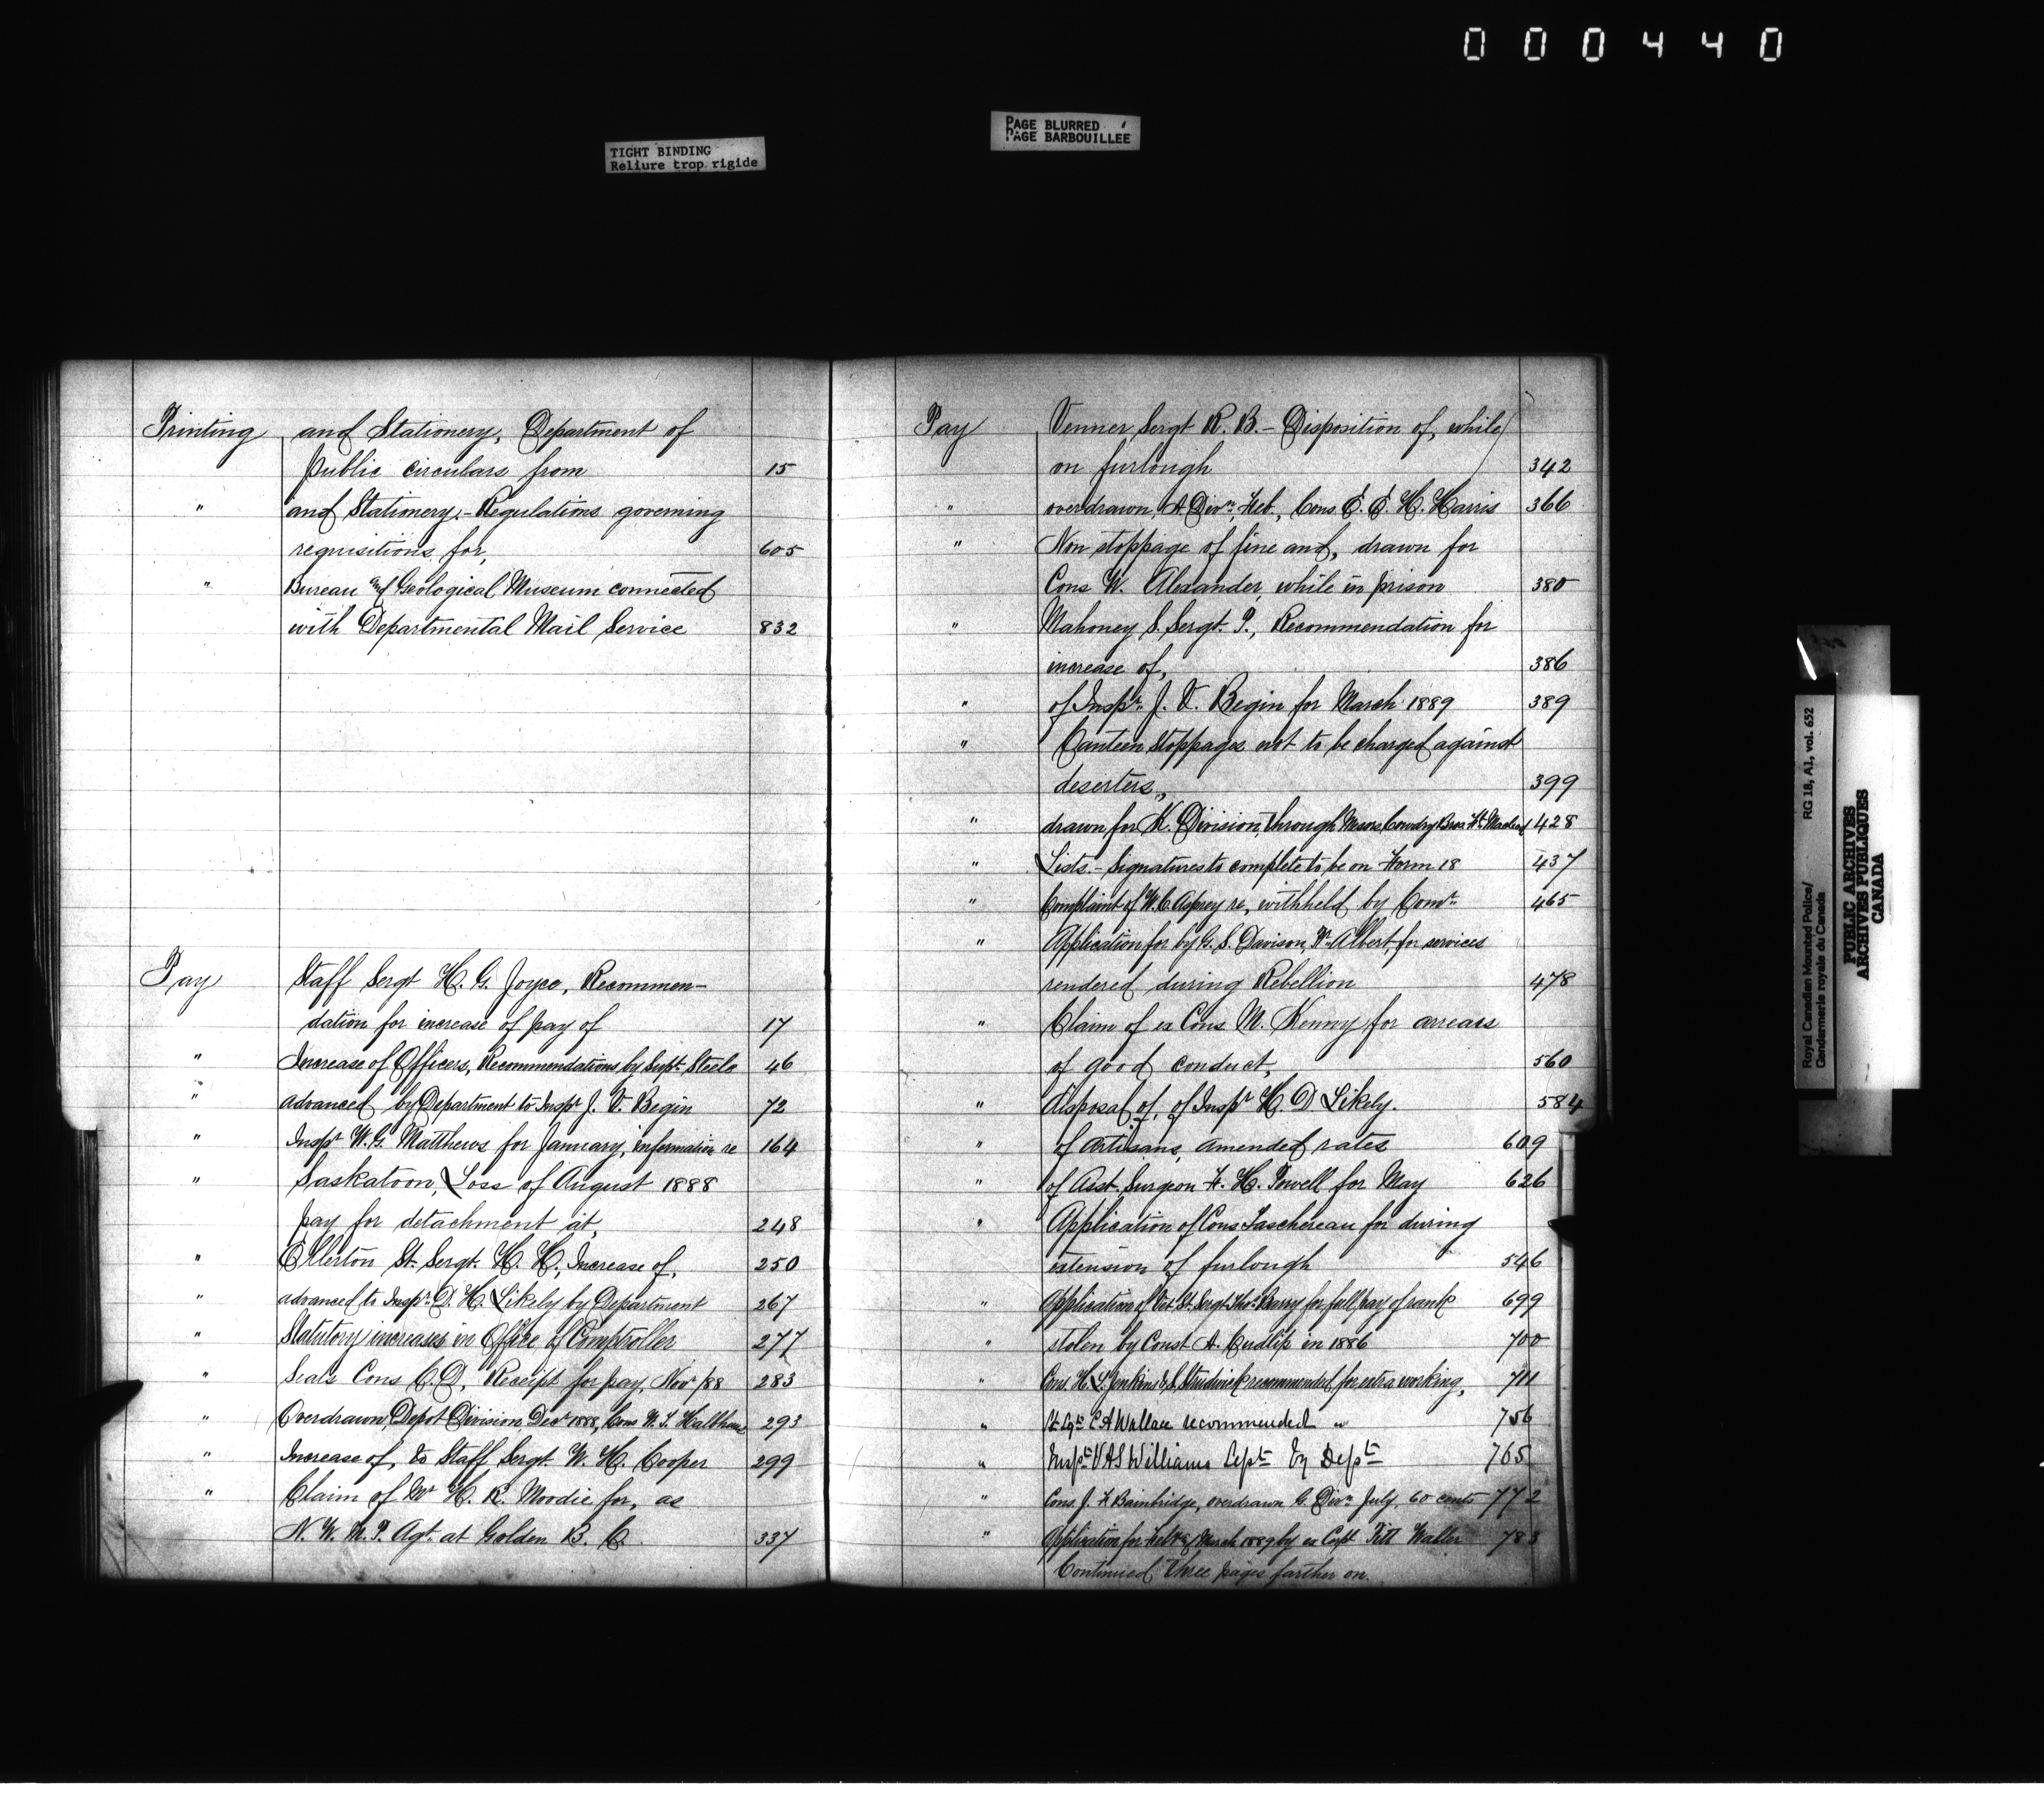 000440
PAGE BLURRED
PAGE BARBOUILLÉE
TIGHT BINDING
Reliure trop rigide
Printing and Stationery, Department of
public circulars from 15
" and Stationery,- Regulations governing
requisitions for, 605
" Bureau and Geological Museum connected
with Departmental Mail Service 832
Pay Staff Sergt H. G. Joyce, Recommen-
dation for increase of pay of 17
" Increase of Officers, Recommendations by Supt. Steele 46
" advanced by Department to Inspr J. V. Begin 72
" Inspr W. G. Matthews for January, information re 164
" Saskatoon, Loss of August 1888
pay for detachment at, 248
" Ellerton St. Sergt. H. H., Increase of, 250
" advanced to Inspr. D. H. Likely by Department 267
" Statutory increases in Office of Comptroller 277
" Seals Cons C. D, Receipt for pay, Novr /88 283
" Overdrawn, Depot Division Decr 1888, Cons 293
" Increase of, to Staff Sergt. W. H. Cooper 299
" Claim of Mr H. R. Moodie for, as
N. W. M. P. Agt. at Golden B. C. 337
Pay Venner Sergt R. B. - Disposition of, while
on furlough 342
" overdrawn, A Divn, Feb., Cons. E. E. H. Harris 366
" Non stoppage of fine and, drawn for
Cons W. Alexander, while in prison 380
" Mahoney S. Sergt. P., Recommendation for
increase of, 386
" of Inspr. J. V. Begin for March 1889 389
" Canteen stoppages not to be charged against
deserters, 399
" drawn for K. Division, through Messrs Cowdry Bros Ft. Macleod 428
" Lists. - Signatures to complete to be on Form 18 437
" Complaint of W. C. Asprey re, withheld by Comr. 465
" Application for by G. S. Davison, Pr. Albert, for services
rendered during Rebellion 478
" Claim of ex Cons M. Kenny for arrears
of good conduct, 560
" disposal of, of Inspr H. D Likely. 584
" of Artisans, amended rates 609
" of Asst. Surgeon F. H. Powell for May 626
" Application of Cons Taschereau for during
extension of furlough 546
" Application of Vet. St. Sergt. Thos. Barry for full pay of rank 699
" stolen by Const A. Cudlip in 1886 700
" Cons. H. S. Jenkins & S. Strudwick recommended for extra working, 711
" St Sgt C A Wallace recommended " 756
" Inspr V A S Williams Sept by Dept 765
" Cons. J. F. Bainbridge, overdrawn G. Divn July, 60 cents 772
" Application for Feb & March 1889 by ex Corpl Waller 783
Continued three pages farther on.
Royal Canadian Mounted Police/
Gendarmerie royale du Canada
RG 18, A1, vol. 652
PUBLIC ARCHIVES
ARCHIVES PUBLIQUES
CANADA